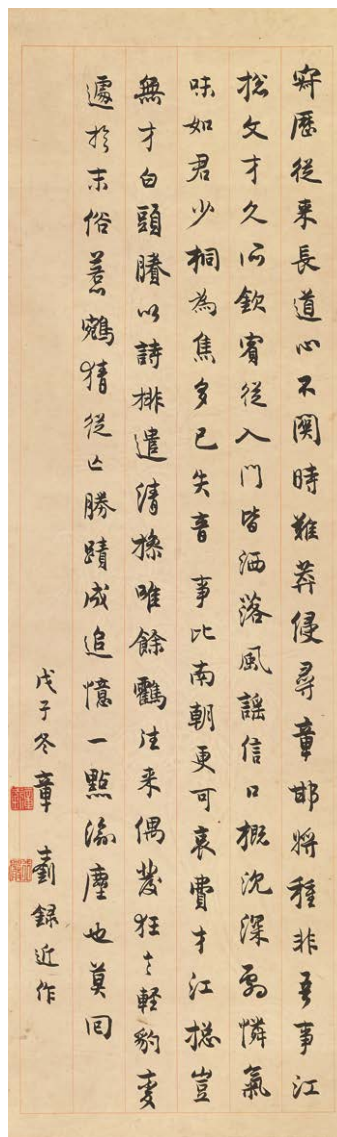 歷從來長道心不關時難莽侵尋章邯將種非吾事江
總文才久所欽賓從入門皆洒落風謠信口概沈深憐氣
味如君少桐為焦多已失音 事比南朝更可哀費才江總豈
無才白頭賸以詩排遣清操唯餘鸖往來偶發狂言輕豹變
遽於末俗惹鵷猜從亡勝蹟成追憶一點塵也莫回
戊子冬 章士釗錄近作